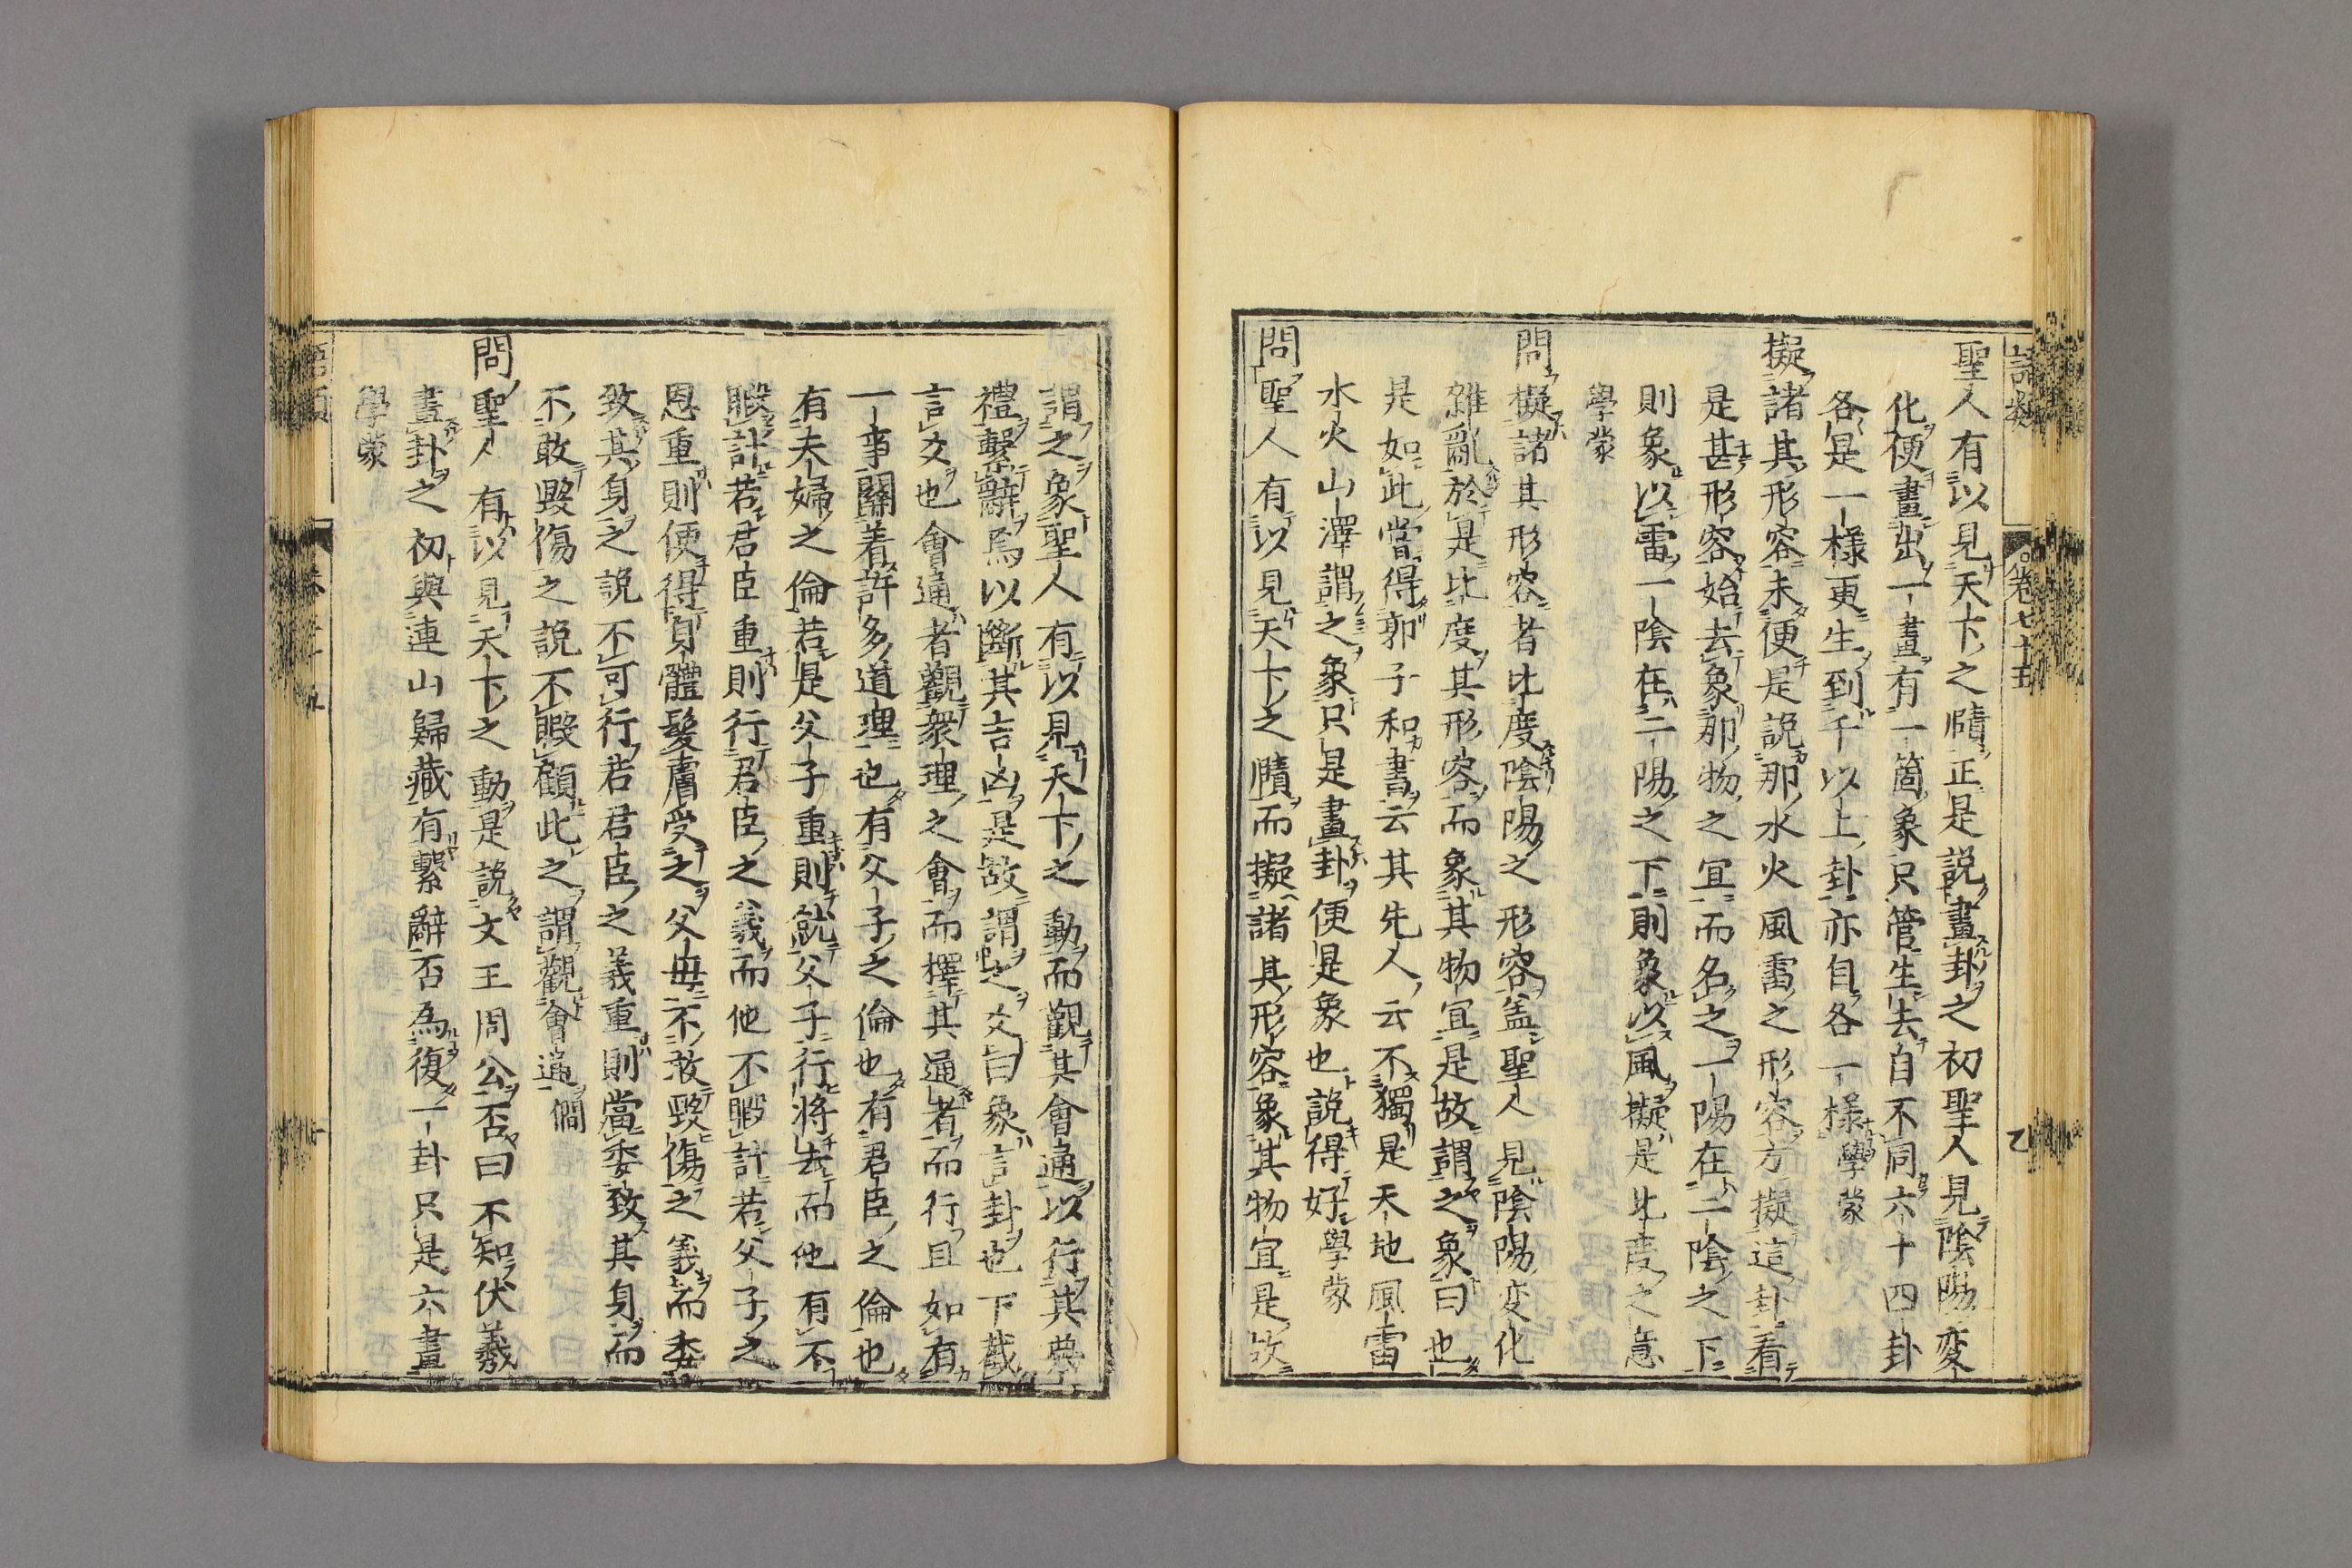 語類
卷七十五
聖人有以見天下之賾正是説畫卦之初聖人見陰陽変
化便畫出一畫有一箇象只管生去自不同六十四卦
各是一様更生到千以上卦亦自各一様學蒙
擬諸其形容未便是説那水火風雷之形容方擬這卦看
是甚形容始去象那物之宜而名之一陽在二陰之下
則象以雷一陰在二陽之下則象以風擬是比度之意
學蒙
問擬諸其形容者比度陰陽之形容盖聖人見陰陽変化
雜亂於是比度其形容而象其物宜是故謂之象曰也
是如此嘗得郭子和書云其先人云不獨是天地風雷
水火山澤謂之象只是畫卦便是象也説得好學蒙
問聖人有以見天下之賾而擬諸其形容象其物宜是故
謂之象聖人有以見天下之動而觀其會通以行其典
禮繫辭焉以斷其吉凶是故謂之爻曰象言卦也下截
言爻也會通者觀衆理之會而擇其通者而行且如有
一事關着許多道理也有父子之倫也有君臣之倫也
有夫婦之倫若是父子重則就父子行將去而他有不
暇計若君臣重則行君臣之義而他不暇計若父子之
恩重則便得身體髮膚受之父母不敢毀傷之義而委
致其身之説不可行若君臣之義重則當委致其身而
不敢毀傷之説不暇顧此之謂觀會通僩
問聖人有以見天下之動是説文王周公否曰不知伏羲
畫卦之初與連山歸藏有繫辭否為復一卦只是六畫
學蒙